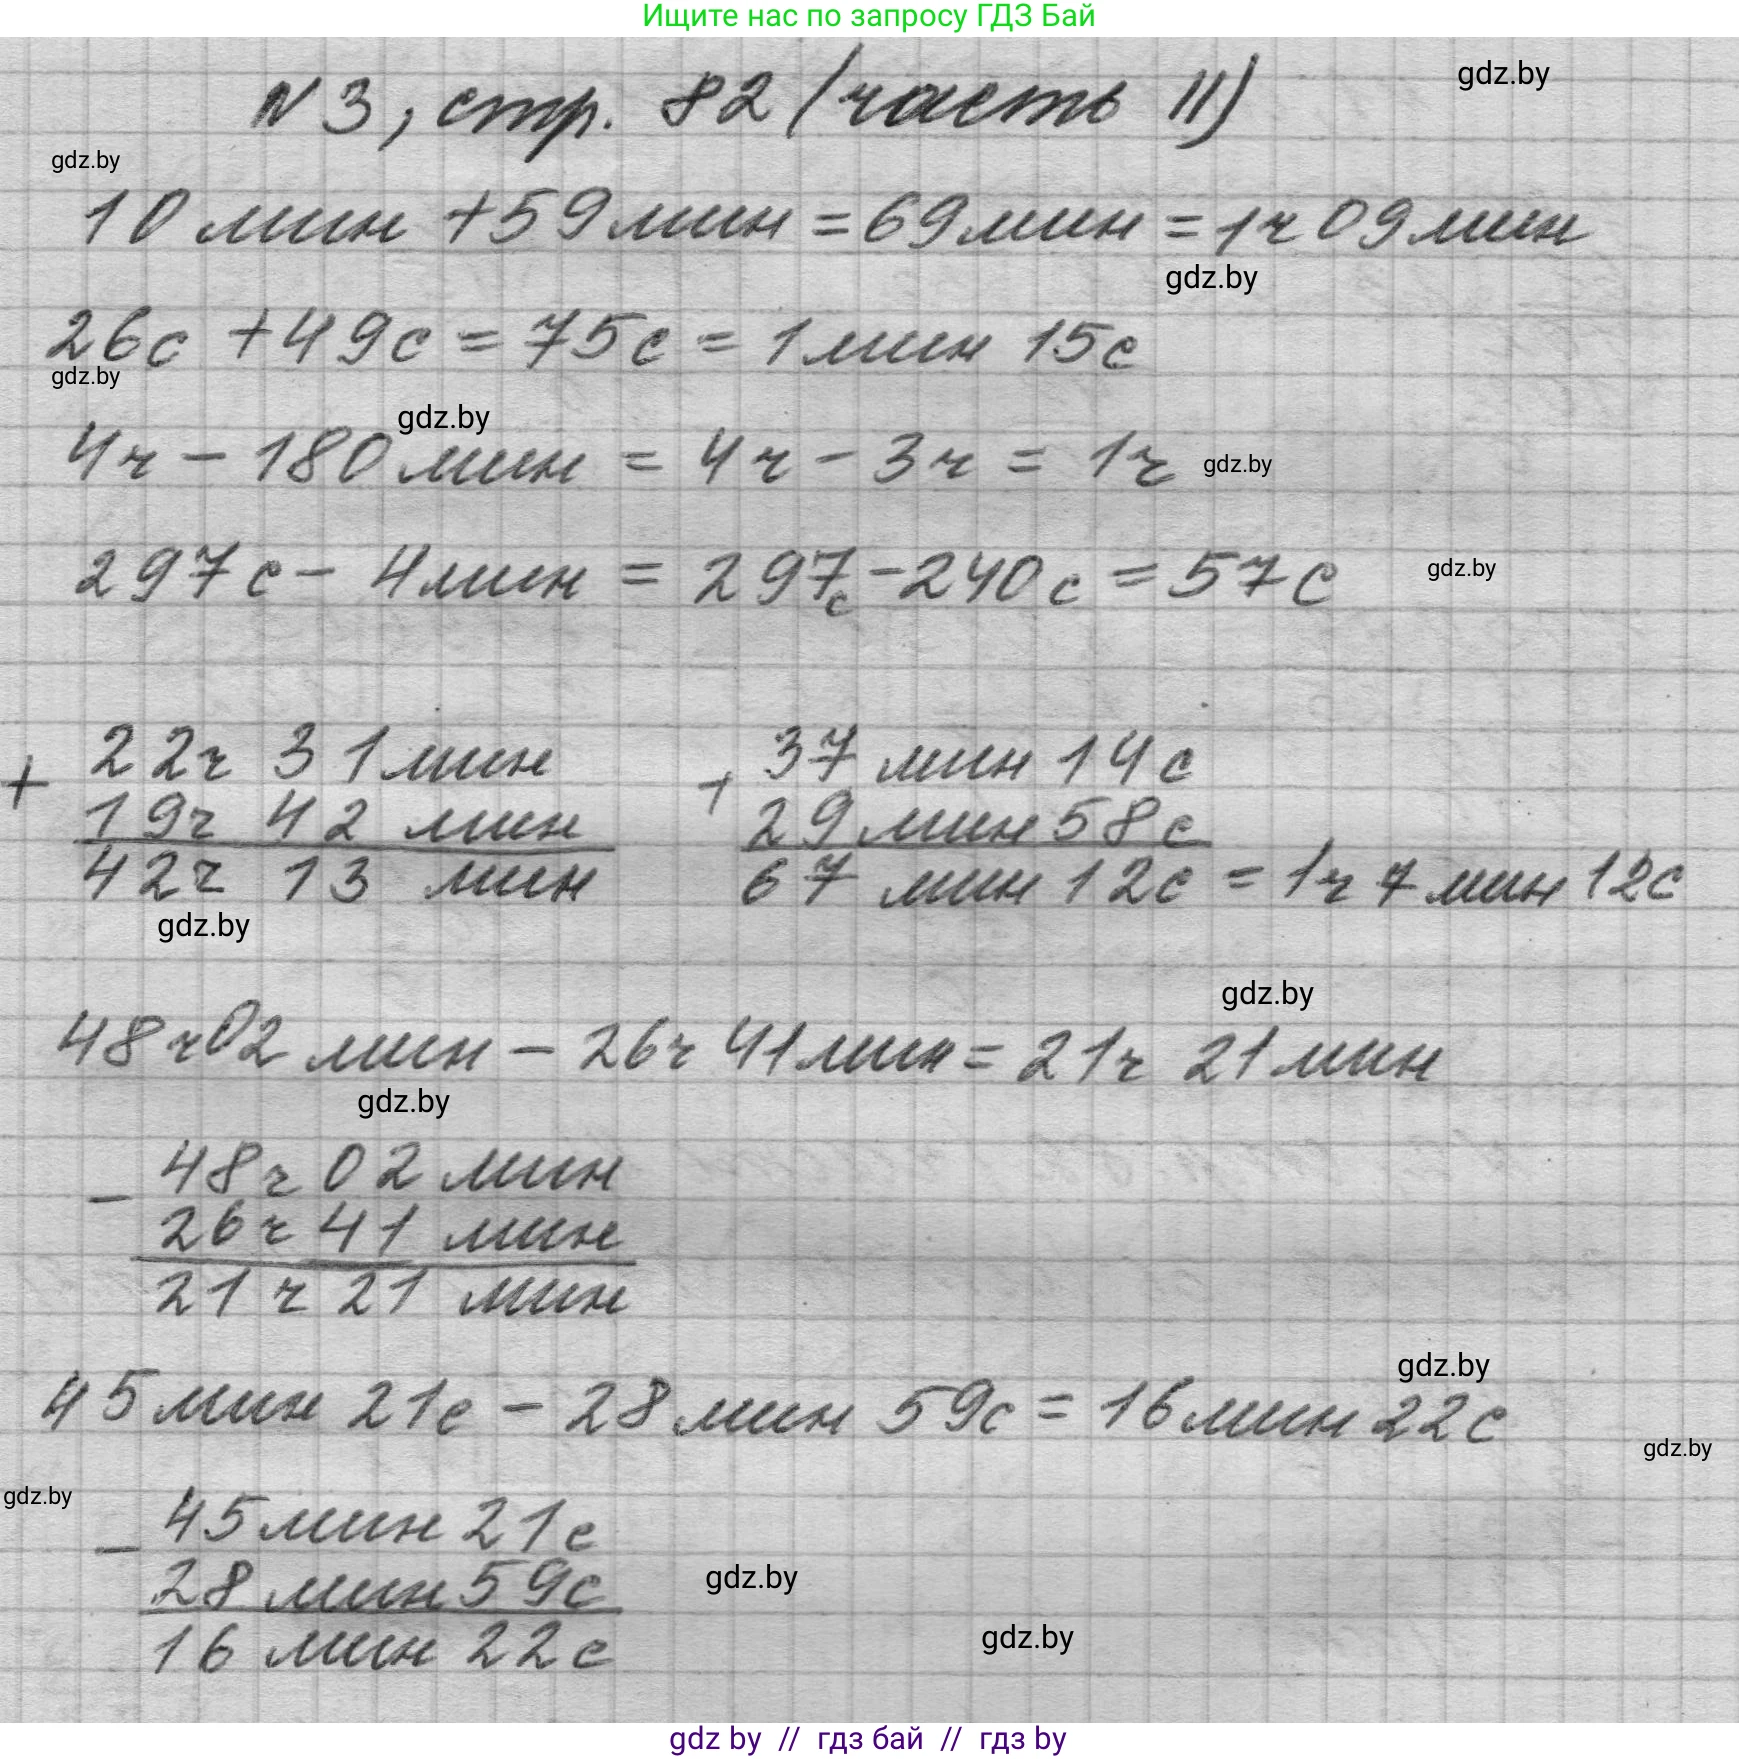 Ищите нас по запросу ГДЗ Бай
gdz.by
N 3, стр. 82 (часть II)
gdz.by
10 мин + 59 мин = 69 мин = 1ч 09 мин
gdz.by
26с + 49с = 75с = 1 мин 15с
gdz.by
gdz.by
4ч - 180 мин = 4ч - 3ч = 1ч
gdz.by
297с - 4 мин = 297с - 240с = 57с
gdz.by
+ 22ч 31 мин + 37 мин 14с
19ч 42 мин 29 мин 58с
42ч 13 мин 67 мин 12с = 1ч 7 мин 12с
gdz.by
gdz.by
48ч 02 мин - 26ч 41 мин = 21ч 21 мин
gdz.by
- 48ч 02 мин
26ч 41 мин
21ч 21 мин
gdz.by
45 мин 21с - 28 мин 59с = 16 мин 22с
gdz.by
gdz.by
- 45 мин 21с
28 мин 59с
gdz.by
16 мин 22с
gdz.by
gdz by // гдз бай // гдз by